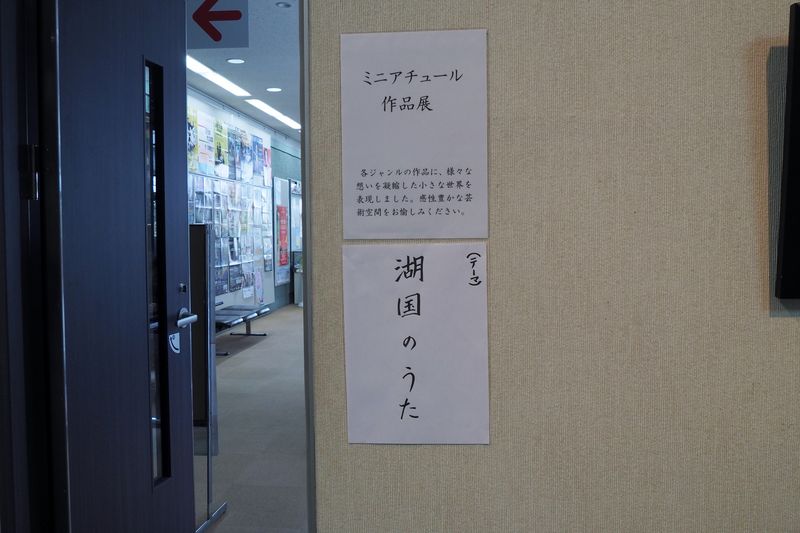 ミニアチュール
作品展
各ジャンルの作品に、様々な
想いを凝縮した小さな世界を
表現しました。感性豊かな芸
術空間をお愉しみください。
(テーマ)
湖国のうた